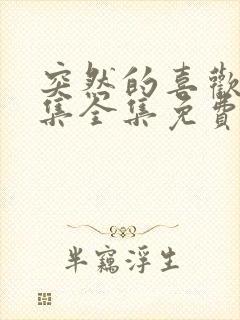 突然的喜歡
集全集免費
半竊浮生